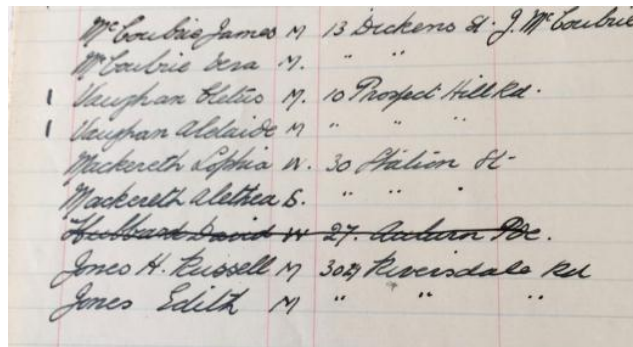 McCoubrie James M 13 Dickens St. J. McCoubrie
McCoubrie Vera M. " "
1 Vaughan Cletus M. 10 Prospect Hill Rd.
1 Vaughan Adelaide M " " "
Mackereth Sophia W. 30 Station St
Mackereth Alethea S. " " "
Hubbard David W 27. Auburn Pde.
Jones H. Russell M 302 Riversdale Rd
Jones Edith M " " "